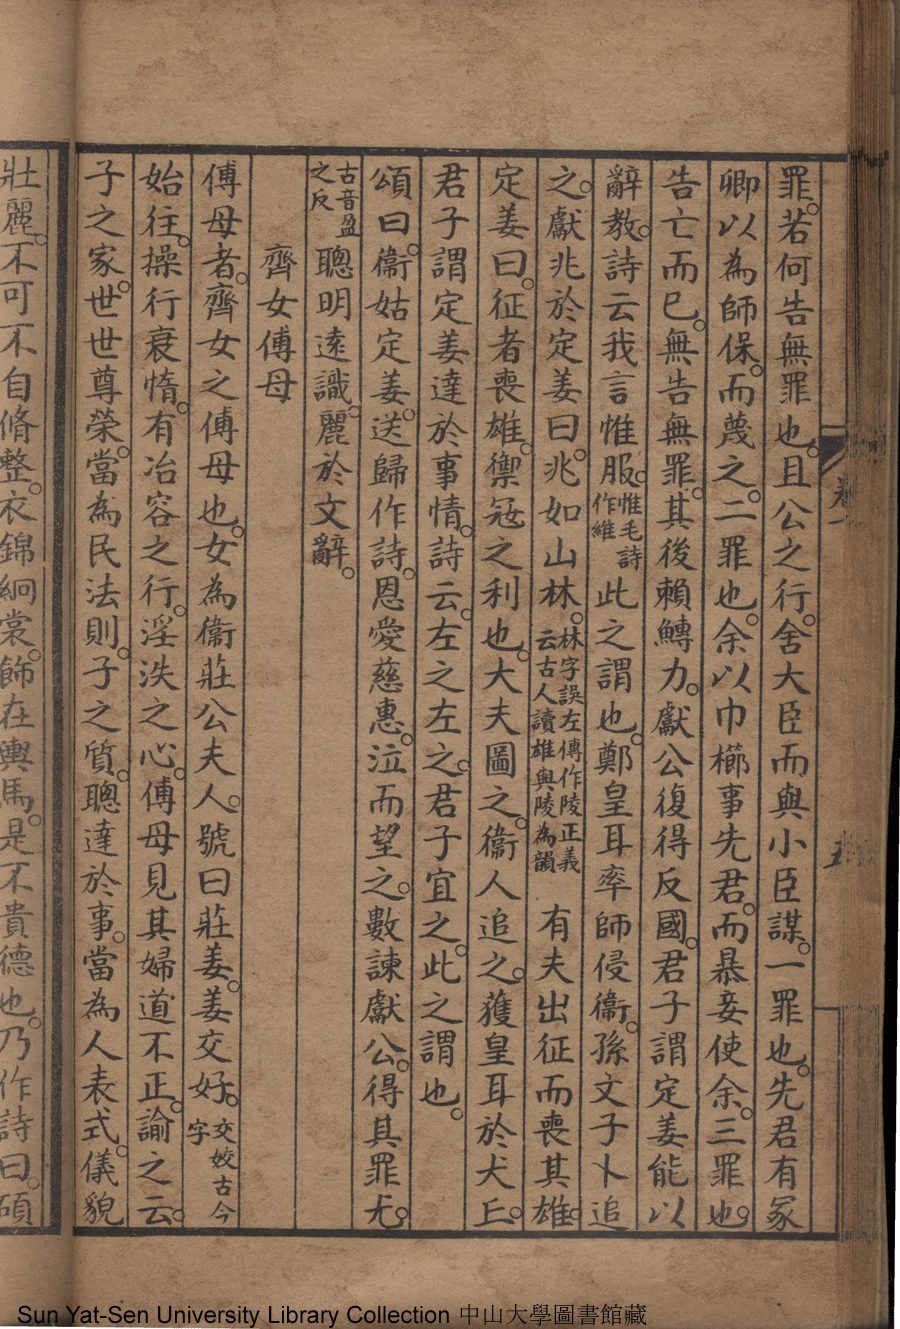 罪。若何告無罪也。且公之行。舍大臣而與小臣謀。一罪也。先君有冢
卿以為師保。而蔑之。二罪也。余以巾櫛事先君。而暴妾使余。三罪也。
告亡而已。無告無罪。其後賴鱄力。獻公復得反國。君子謂定姜能以
辭教。詩云我言惟服。惟毛詩作維此之謂也。鄭皇耳率師侵衞。孫文子卜追
之。獻兆於定姜曰。兆如山林。林字誤左傳作陵正義云古人讀雄與陵為韻有夫出征而喪其雄。
定姜曰。征者喪雄。禦寇之利也。大夫圖之。衞人追之。獲皇耳於犬丘。
君子謂定姜達於事情。詩云。左之左之。君子宜之。此之謂也。
頌曰。衞姑定姜。送歸作詩。恩愛慈惠。泣而望之。數諫獻公。得其罪尤。
古音盈之反聰明遠識。麗於文辭。
齊女傅母
傅母者。齊女之傅母也。女為衞莊公夫人。號曰莊姜。姜交好。交姣古今字
始往。操行衰惰。有冶容之行。淫泆之心。傅母見其婦道不正。諭之云。
子之家。世世尊榮。當為民法則。子之質。聰達於事。當為人表式。儀貌
壯麗。不可不自脩整。衣錦絅裳。飾在輿馬。是不貴德也。乃作詩曰。碩
卷一
五
Sun Yat-Sen University Library Collection 中山大學圖書館藏